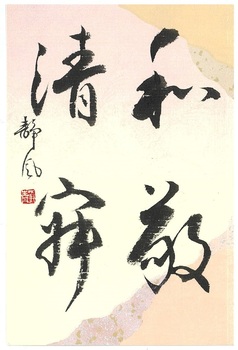 和敬
清寂
静風